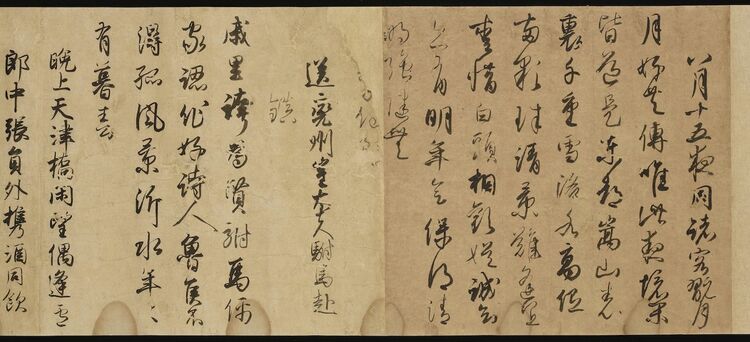 八月十五夜同諸客翫月
月好共傳唯此夜境閑
皆道是東都嵩山表
裏千重雪洛水高低
兩顆珠清景難逢宜
愛惜白頭相歡娛誠知
亦有明年會保得清
明強健無
送兗州崔大夫駙馬赴
鎮
戚里誇為賢駙馬儒
家認作好詩人魯侯不
得孤風景沂水年〻
有暮春
晚上天津橋閑望偶逢盧
郎中張員外攜酒同飲